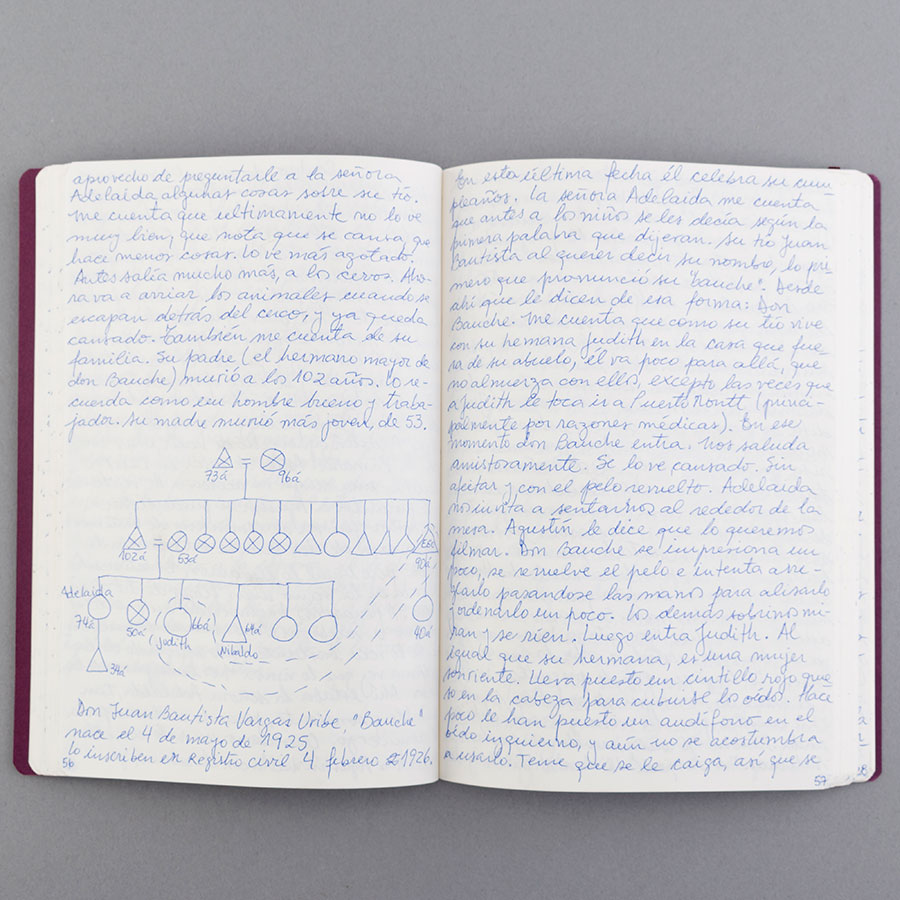 aprovecho de preguntarle a la señora
Adelaida algunas cosas sobre su tío.
Me cuenta que últimamente no lo ve
muy bien, que nota que se cansa, que
hace menos cosas. Lo ve más agotado.
Antes salía mucho más, a los cerros. Aho-
ra va a arriar los animales cuando se
escapan detrás del cerco, y ya queda
cansado. También me cuenta de su
familia. Su padre (el hermano mayor de
don Bauche) murió a los 102 años. Lo re-
cuerda como un hombre bueno y traba-
jador. Su madre murió más joven, de 53.
73á = 96á
102á = 53á
90á
Adelaida
74á
50á
66á
(Judith)
64á
Nibaldo
40á
34á
Don Juan Bautista Vargas Uribe, "Bauche"
nace el 4 de mayo de 1925
lo inscriben en Registro civil 4 febrero 1926.
56
En esta última fecha él celebra su cum-
pleaños. La señora Adelaida me cuenta
que antes a los niño se les decía según la
primera palabra que dijeran. Su tío Juan
Bautista al querer decir su nombre, lo pri-
mero que pronunció su "bauche". Desde
ahí que le dicen de esa forma: Don
Bauche. Me cuenta que como su tío vive
con su hemana Judith en la casa que fue-
ra de su abuelo, él va poco para allá, que
no almuerza con ellos, excepto las veces que
a Judith le toca ir a Puerto Montt (princi-
palmente por razones médicas). En ese
momento don Bauche entra. Nos saluda
amistosamente. Se lo ve cansado. Sin
afeitar y con el pelo revuelto. Adelaida
nos invita a sentarnos al rededor de la
mesa. Agustín le dice que lo queremos
filmar. Don Bauche se impresiona un
poco, se revuelve el pelo e intenta arre-
glarlo pasandose las mano para alisarlo
y ordenarlo un poco. Los demás sobrino mi-
ran y se ríen. Luego entra Judith. Al
igual que su hermana, es una mujer
sonriente. Lleva puesto un cintillo rojo que
en la cabeza para cubrirse los oídos. Hace
poco le han puesto un audífono en el
oído izquierno, y aún no se acostumbra
a usarlo. Teme que se le caiga, así que se
57